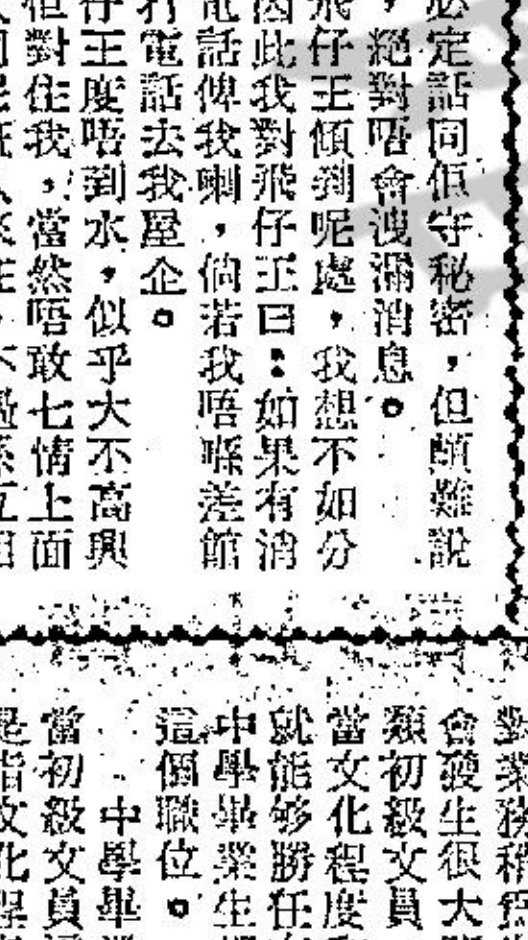 必定話同佢守秘密，但頗難說
，絕對唔會洩漏消息。
飛仔王傾到呢處，我想不如分
因此我對飛仔王曰：如果有消
電話俾我喇，倘若我唔喺差館
打電話去我屋企。
仔王度唔到水，似乎大不高興
佢對住我，當然唔敢七情上面
對業務
會發生很大
類初級文員
當文化程度
就能够勝任
中學畢業生
這個職位。
中學畢
當初級文員
是指文化程